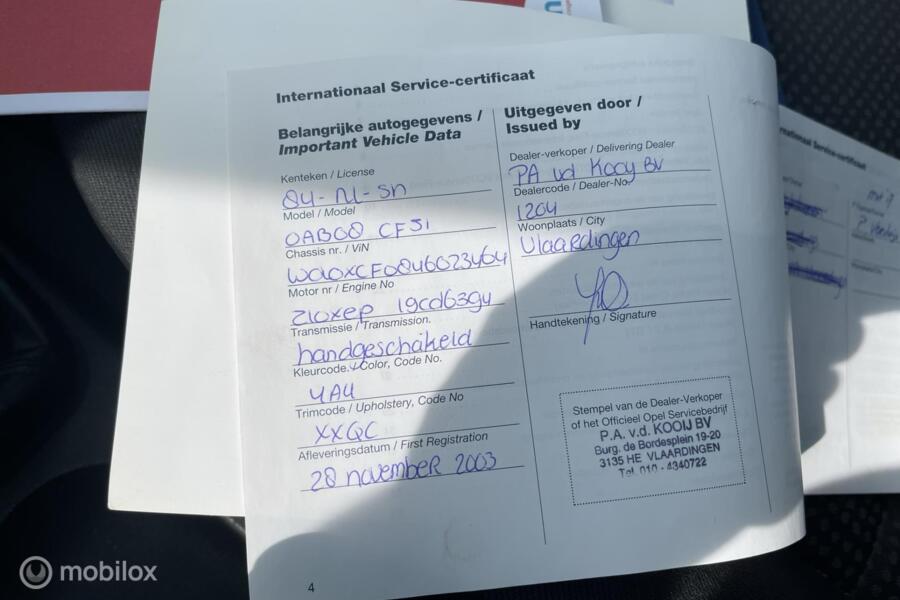 Internationaal Service-certificaat
Belangrijke autogegevens /
Important Vehicle Data
Kenteken / License
84-NL-SN
Model / Model
0AB08 CF51
Chassis nr. / VIN
W0L0XCF0846023464
Motor nr / Engine No
Z10XEP 19cd63gy
Transmissie / Transmission.
handgeschakeld
Kleurcode. / Color, Code No.
4AU
Trimcode / Upholstery, Code No
XXQC
Afleveringsdatum / First Registration
28 november 2003
4
Uitgegeven door /
Issued by
Dealer-verkoper / Delivering Dealer
PA vd Kooy BV
Dealercode / Dealer-No.
1204
Woonplaats / City
Vlaardingen
Handtekening / Signature
Stempel van de Dealer-Verkoper
of het Officieel Opel Servicebedrijf
P.A. v.d. KOOIJ BV
Burg. de Bordesplein 19-20
3135 HE VLAARDINGEN
Tel. 010 - 4340722
Service-certificaat
mobilox